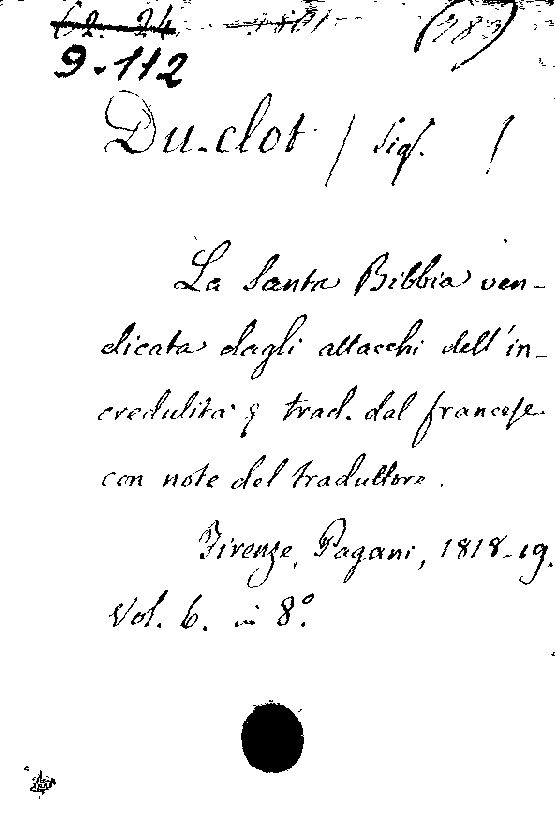 62. 24 (783)
9.112
Du-clot / Sig. /
La Santa Bibbia ven-
dicata dagli attacchi dell'in-
credulità; trad. dal francese
con note del traduttore.
Firenze, Pagani, 1818-19.
Vol. 6. in 8°.